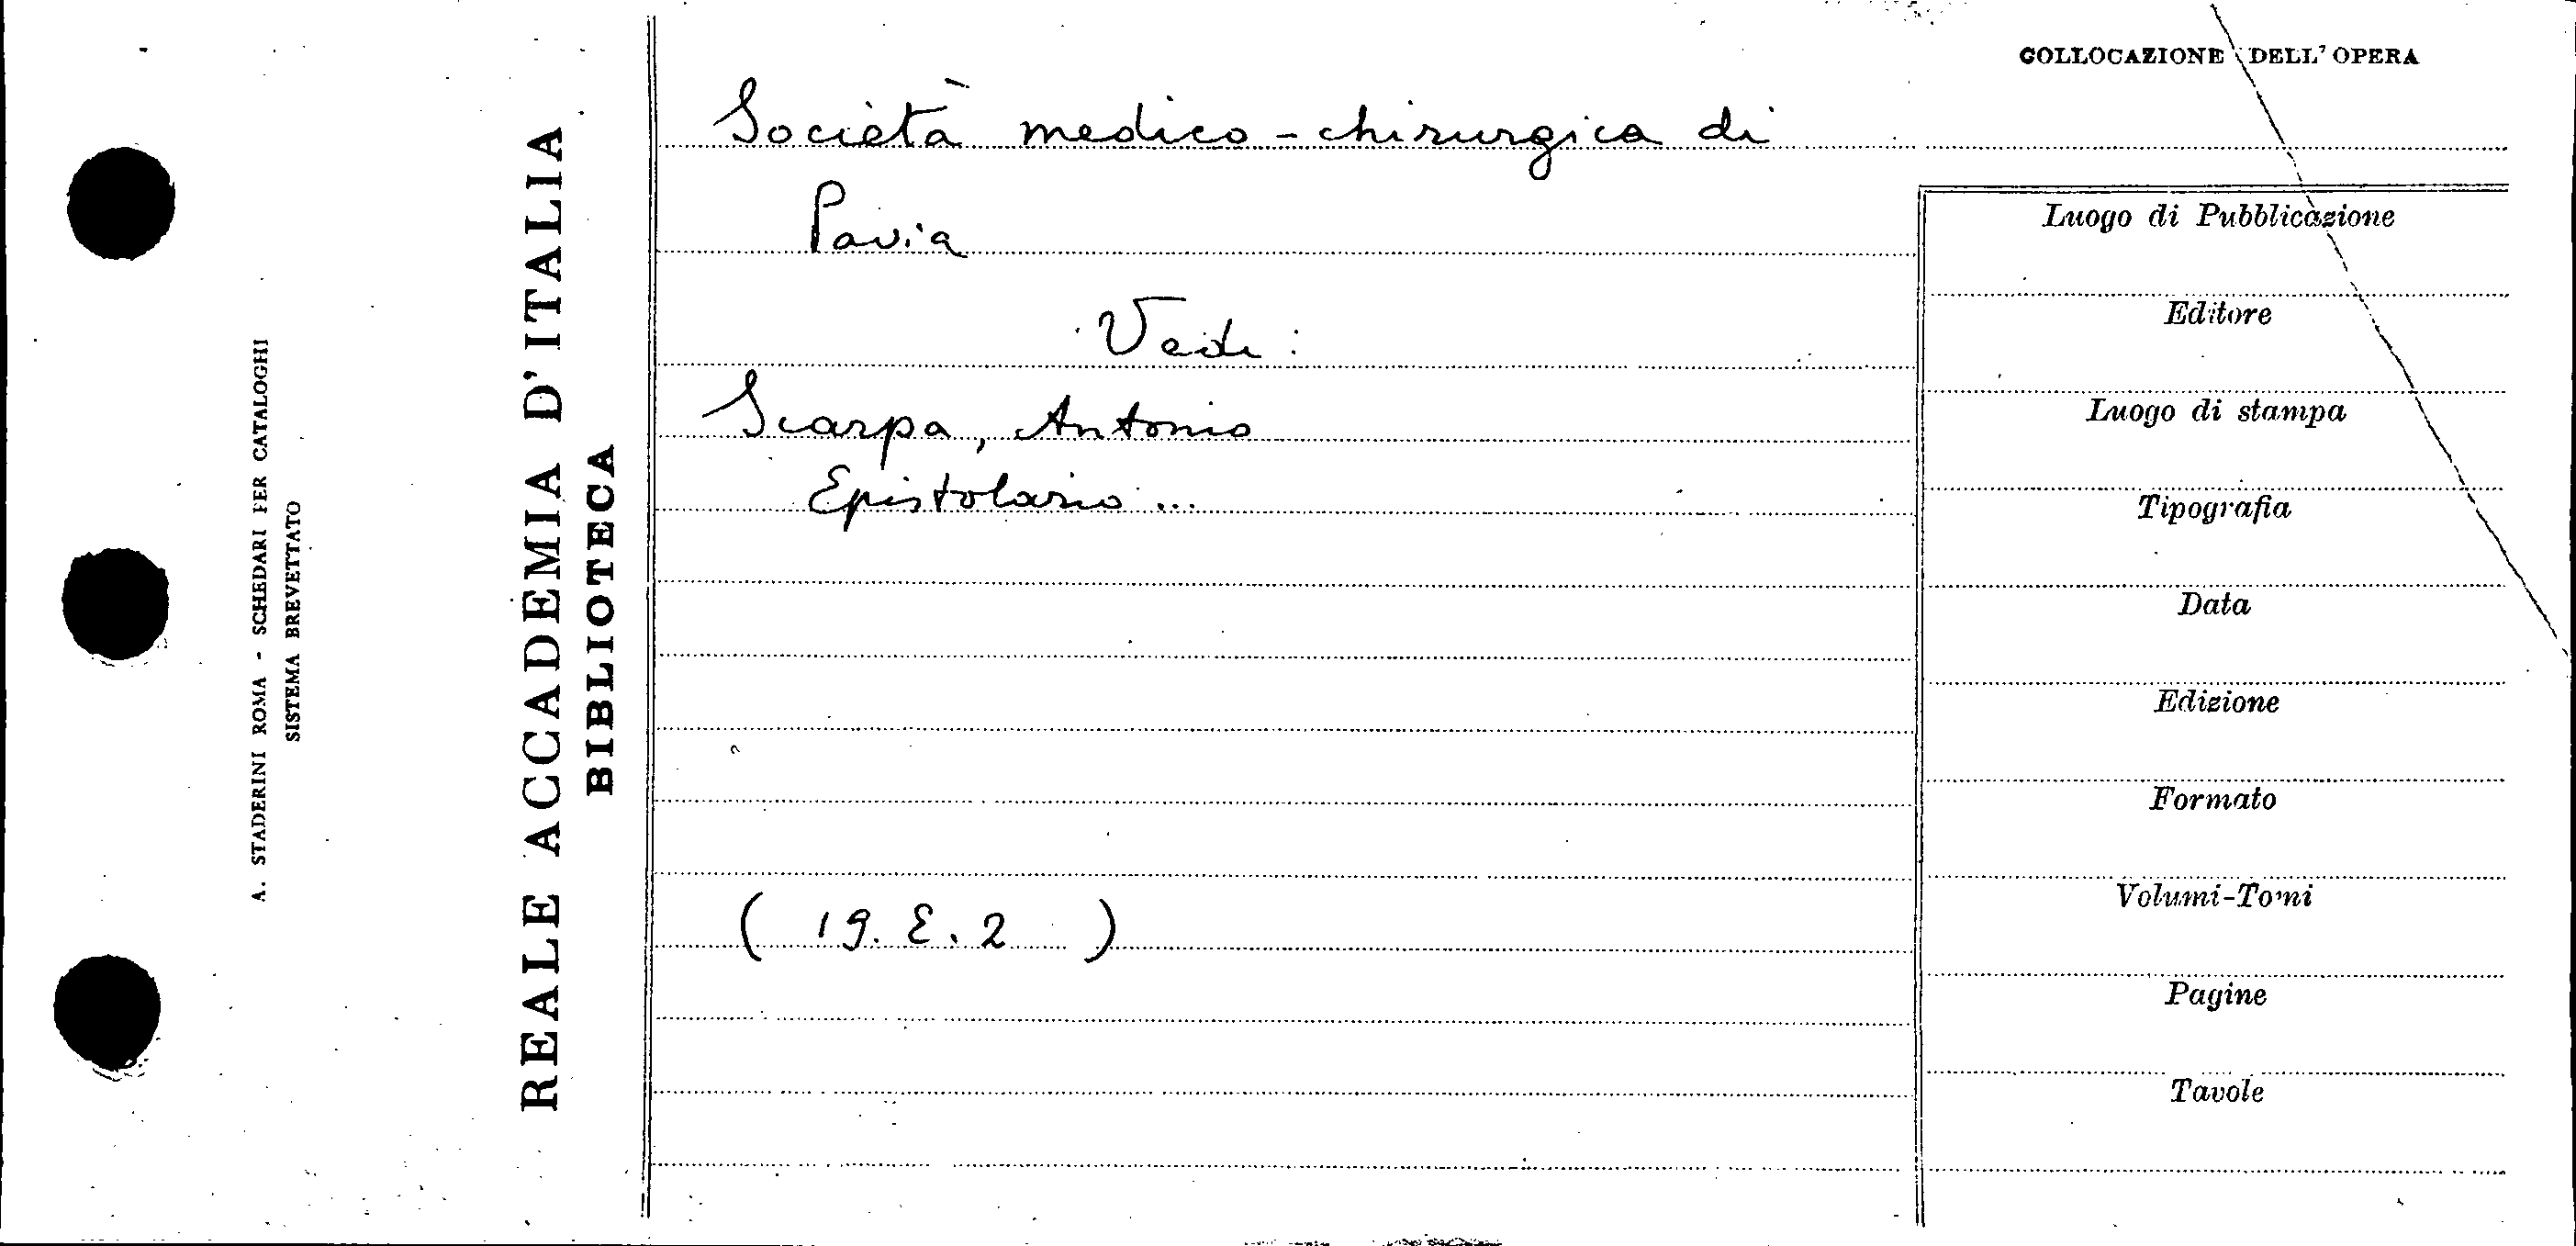 A. STADERINI ROMA - SCHEDARI PER CATALOGHI
SISTEMA BREVETTATO
REALE ACCADEMIA D'ITALIA
BIBLIOTECA
Società medico-chirurgica di
Pavia
Vedi:
Scarpa, Antonio
Epistolario...
( 19. E. 2 )
COLLOCAZIONE DELL'OPERA
Luogo di Pubblicazione
Editore
Luogo di stampa
Tipografia
Data
Edizione
Formato
Volumi-Tomi
Pagine
Tavole